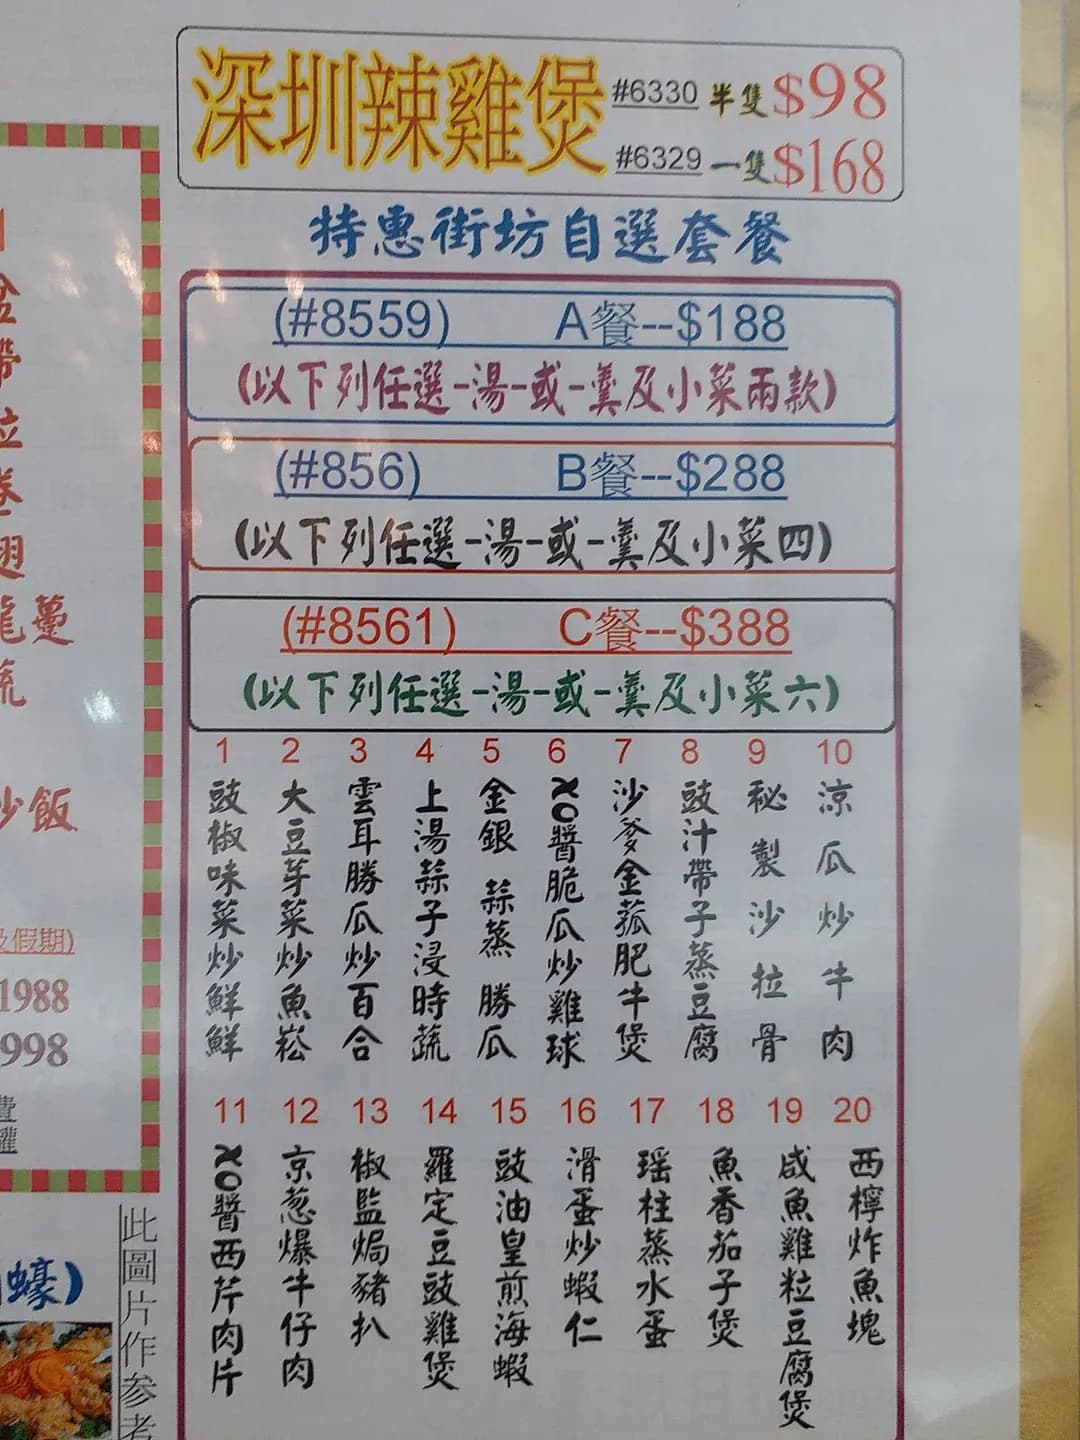 深圳辣雞煲
#6330 半隻$98
#6329 一隻$168
特惠街坊自選套餐
(#8559) A餐--$188
(以下列任選-湯-或-羹及小菜兩款)
(#856) B餐--$288
(以下列任選-湯-或-羹及小菜四)
(#8561) C餐--$388
(以下列任選-湯-或-羹及小菜六)
1 豉椒味菜炒鮮鮮
2 大豆芽菜炒魚崧
3 雲耳勝瓜炒百合
4 上湯蒜子浸時蔬
5 金銀 蒜蒸 勝瓜
6 XO醬脆瓜炒雞球
7 沙爹金菰肥牛煲
8 豉汁帶子蒸豆腐
9 秘製沙拉骨
10 涼瓜炒牛肉
11 XO醬西芹肉片
12 京葱爆牛仔肉
13 椒監焗豬扒
14 羅定豆豉雞煲
15 豉油皇煎海蝦
16 滑蛋炒蝦仁
17 瑶柱蒸水蛋
18 魚香茄子煲
19 咸魚雞粒豆腐煲
20 西檸炸魚塊
盆
帶
位
卷
翅
龍躉
蔬
炒飯
及假期)
1988
998
費
罐
蠔)
此圖片作參考